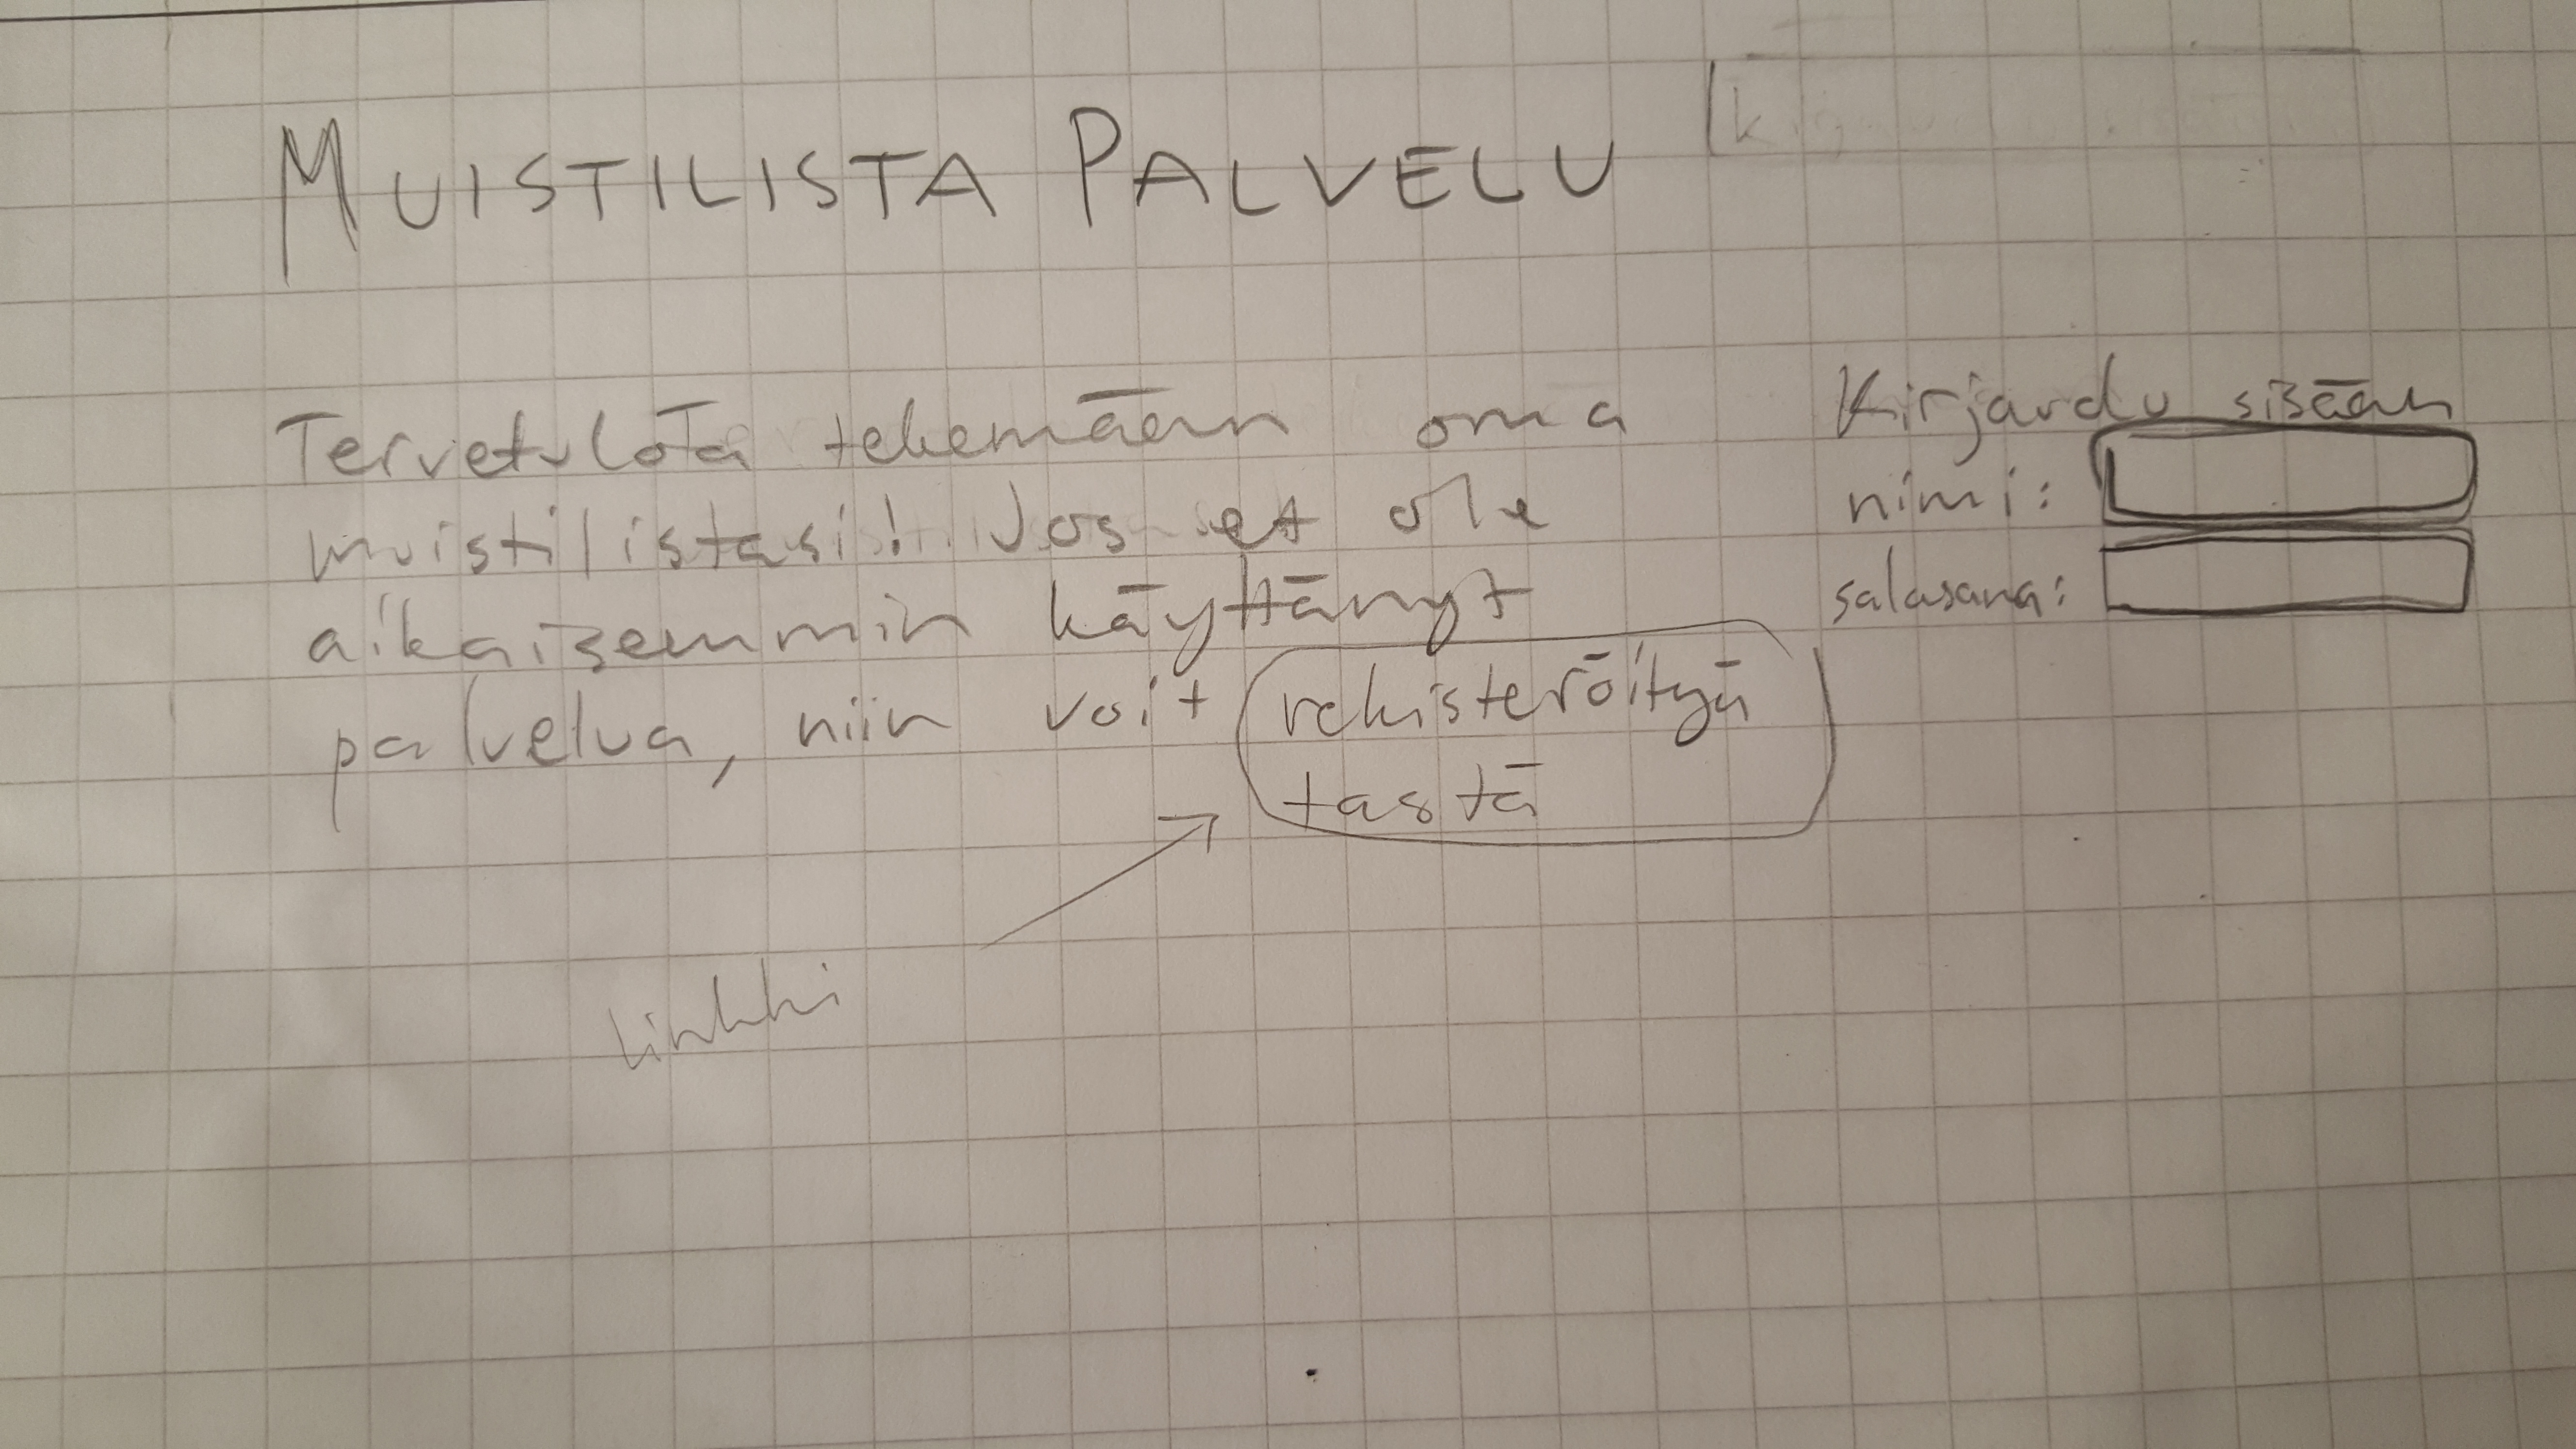 MUISTILISTA PALVELU
Tervetuloa tekemään oma
muistilistasi! Jos et ole
aikaisemmin käyttänyt
palvelua, niin voit rekisteröityä
tästä
linkki
Kirjaudu sisään
nimi:
salasana: